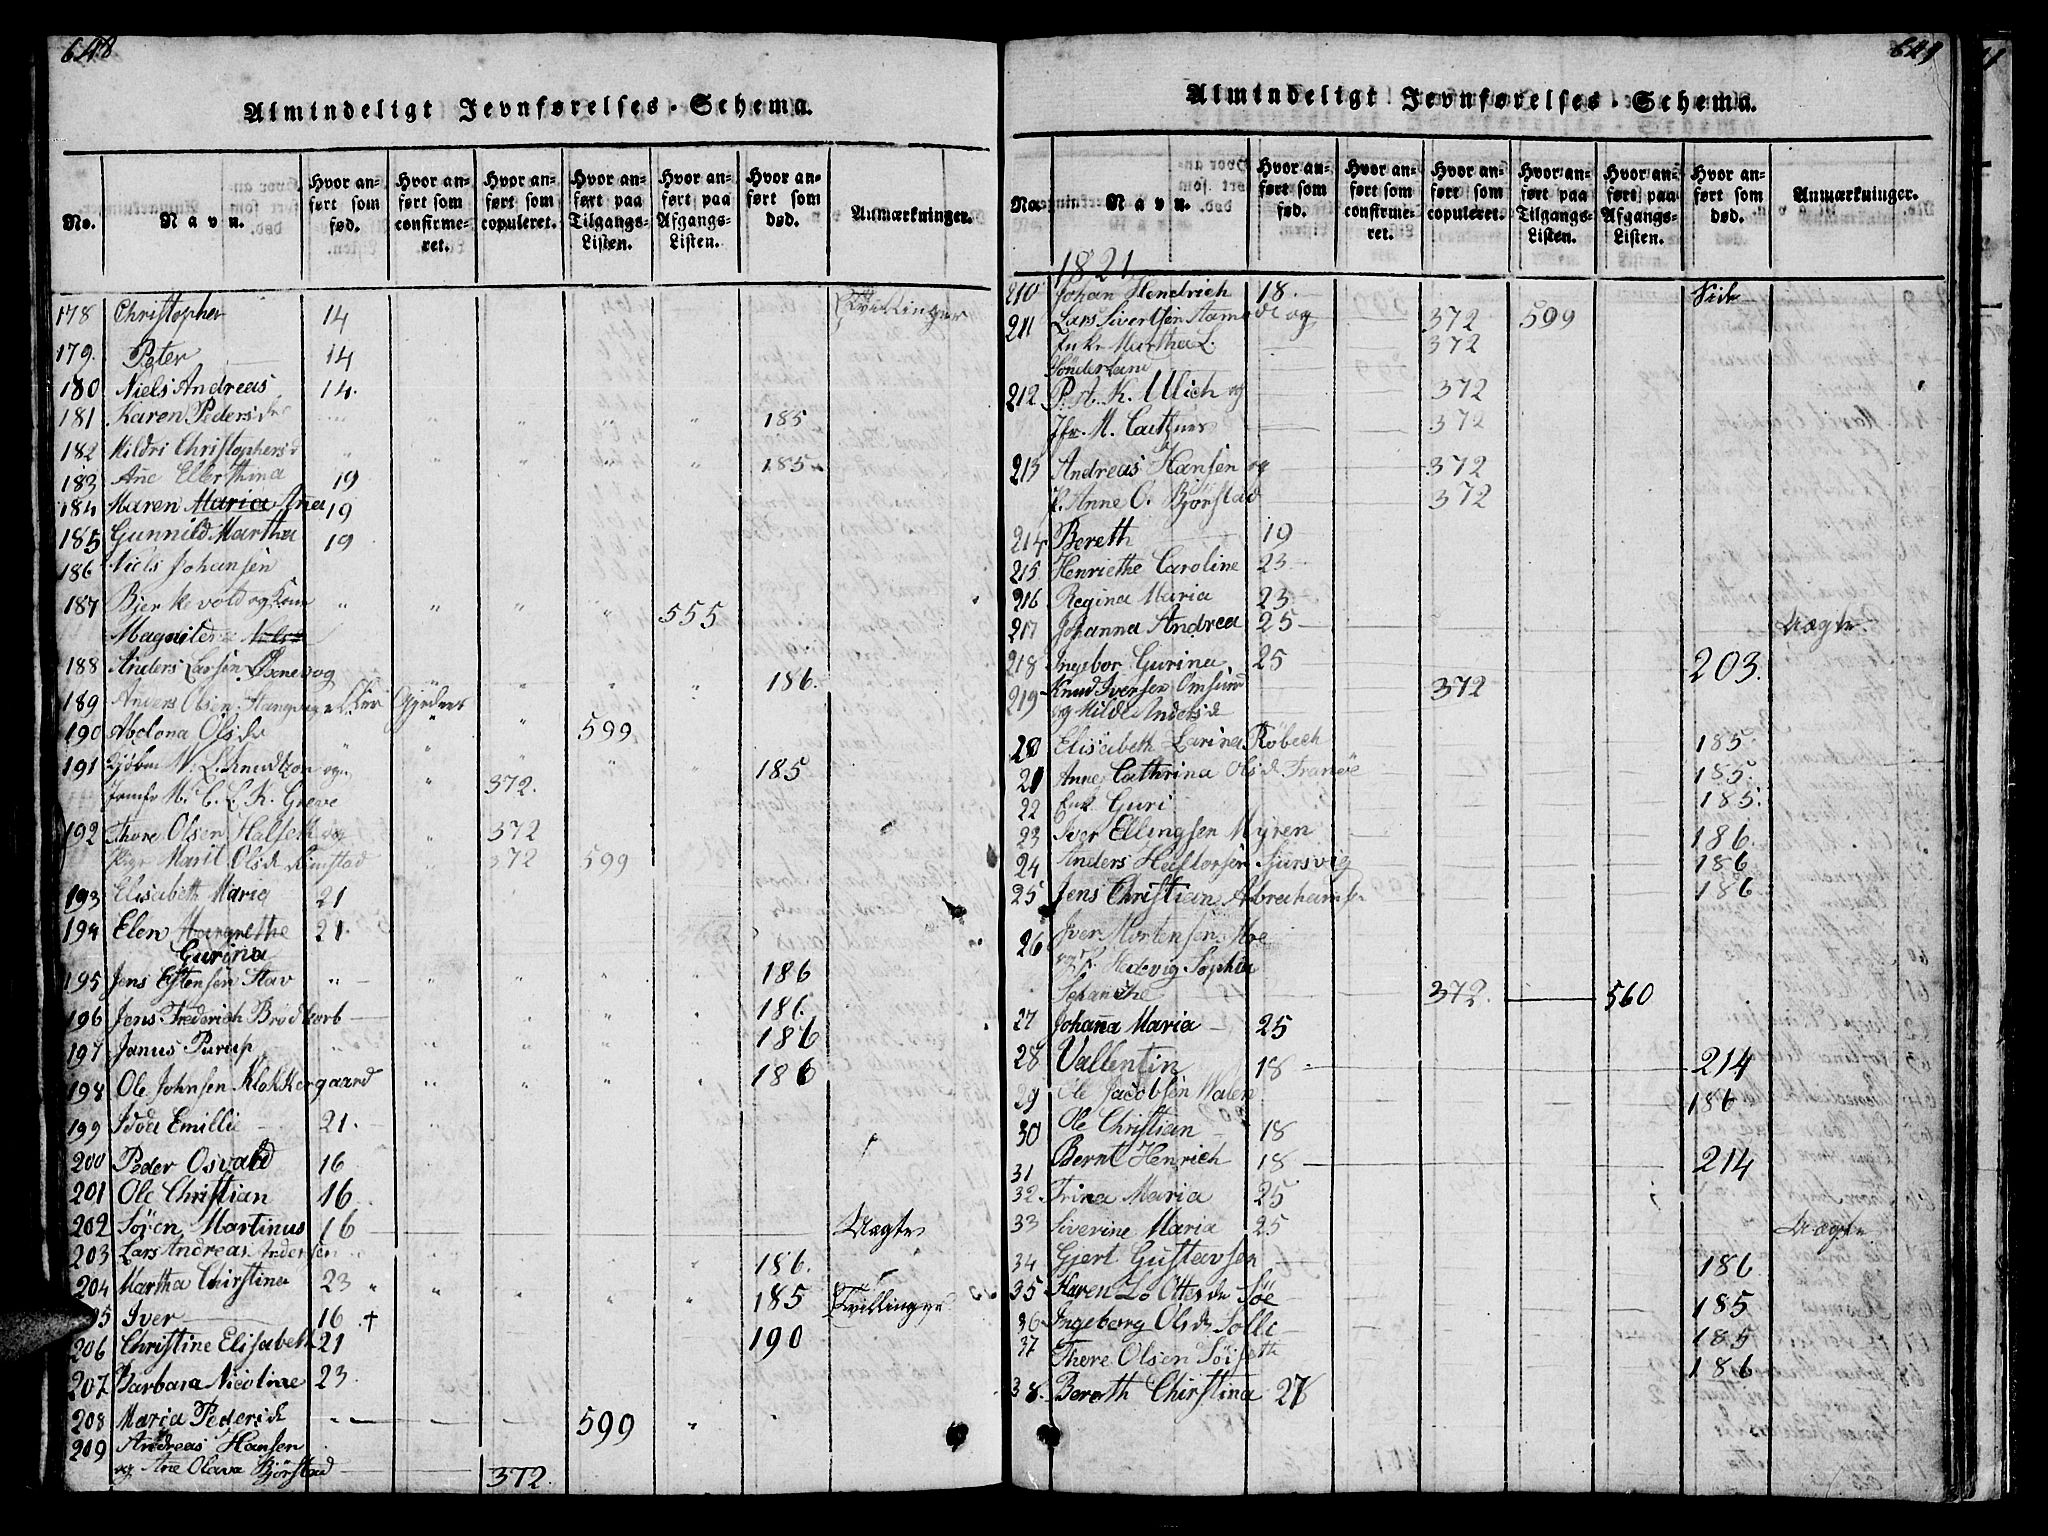 648
Almindeligt Jevnførelses-Schema.
No.
Navn.
Hvor anført som fød.
Hvor anført som confirmeret.
Hvor anført som copuleret.
Hvor anført paa Tilgangs-Listen.
Hvor anført paa Afgangs-Listen.
Hvor anført som død.
Anmærkninger.
178 Christopher 14 Tvillinger
179. Peter 14
180 Niels Andreas 14.
181 Karen Pedersdr " " " " 185
182 Mildri Christophersd " " " " " 185
183 Ane Ellerthina 19
184 Maren Maria Anea 19
185 Gunnild Martha 19
186 Niels Johansen
187 Bjerkevold og Kone " " " " 555
Magnild
188 Anders Larsen Øxnevog " " " 186.
189 Anders Olsen
190 Abelona Olsdr " " " 599
191 Kjøbm N. L. Knudtzon og " " " 185
Jomfr M. C. L. K. Greve " 372.
192 Thore Olsen Halseth og " 372
Marit Olsdr 372 599
193 Elisabeth Maria 21
194 Elen Margrethe 21.
Gurina
195 Jens Estensen Stav " " " " " 186
196 Jens Frederich Brodtkorb " " " 186.
197 Janus Purup " " " " 186
198 Ole Johnsen Klokkergaard " " " " 186
199 Idda Emillie 21.
200 Peder Osvald 16
201 Ole Christian 16
202 Søren Martinus 16 Uægte
203 Lars Andreas Andersen " " 186.
204 Martha Chirstina 23 " " " " " 185
205 Iver 16 † Tvillinger
206 Christine Elisabeth 21 190
207 Barbara Nicoline 23.
208 Maria Pedersdr " 599 "
209 Andreas Hansen
og Ane Olava Bjørstad 372.
649
Almindeligt Jevnførelses-Schema.
No.
Navn.
Hvor anført som fød.
Hvor anført som confirmeret.
Hvor anført som copuleret.
Hvor anført paa Tilgangs-Listen.
Hvor anført paa Afgangs-Listen.
Hvor anført som død.
Anmærkninger.
1821
210 Johan Hendrich 18. Side
211 Lars Sivertsen og 372 599
Enke Martha L. 372
Sønderland
212 P. A. K. Ullich og 372
Jfr. M. 372
213 Andreas Hansen og 372
P. Anne O. Bjørstad 372
214 Bereth 19
215 Henriethe Caroline 23
216 Regina Maria 23
217 Johanna Andrea 25 Uægte
218 Ingebor Gurina 25 203.
219 Knud Iversen Omsund 372
og Mildri Andersdr
20 Elisabeth Larina Røbech 185.
21 Anne Cathrina Olsdr 185.
22 Enk. Guri 185.
23 Iver Ellingsen Myren 186.
24 Anders Siursvig 186
25 Jens Christian Abrahams 186
26 Iver Mortensen Moe
og P. Hedevig Sophia
Schanche 372. 560
27 Johana Maria 25
28 Vallentin 18 214
29 Ole Jacobsen Walen 186
30 Ole Christian 18
31 Bernt Henrich 18 214
32. Trina Maria 25
33 Siverine Maria 25 Uægte
34 Gjert Gustavsen 186
35 Karen Lo Ottesdr Søe 185
36 Ingeborg Olsdr Solli 185
37 Thore Olsen Søiseth 186
38. Bereth Chirstina 27